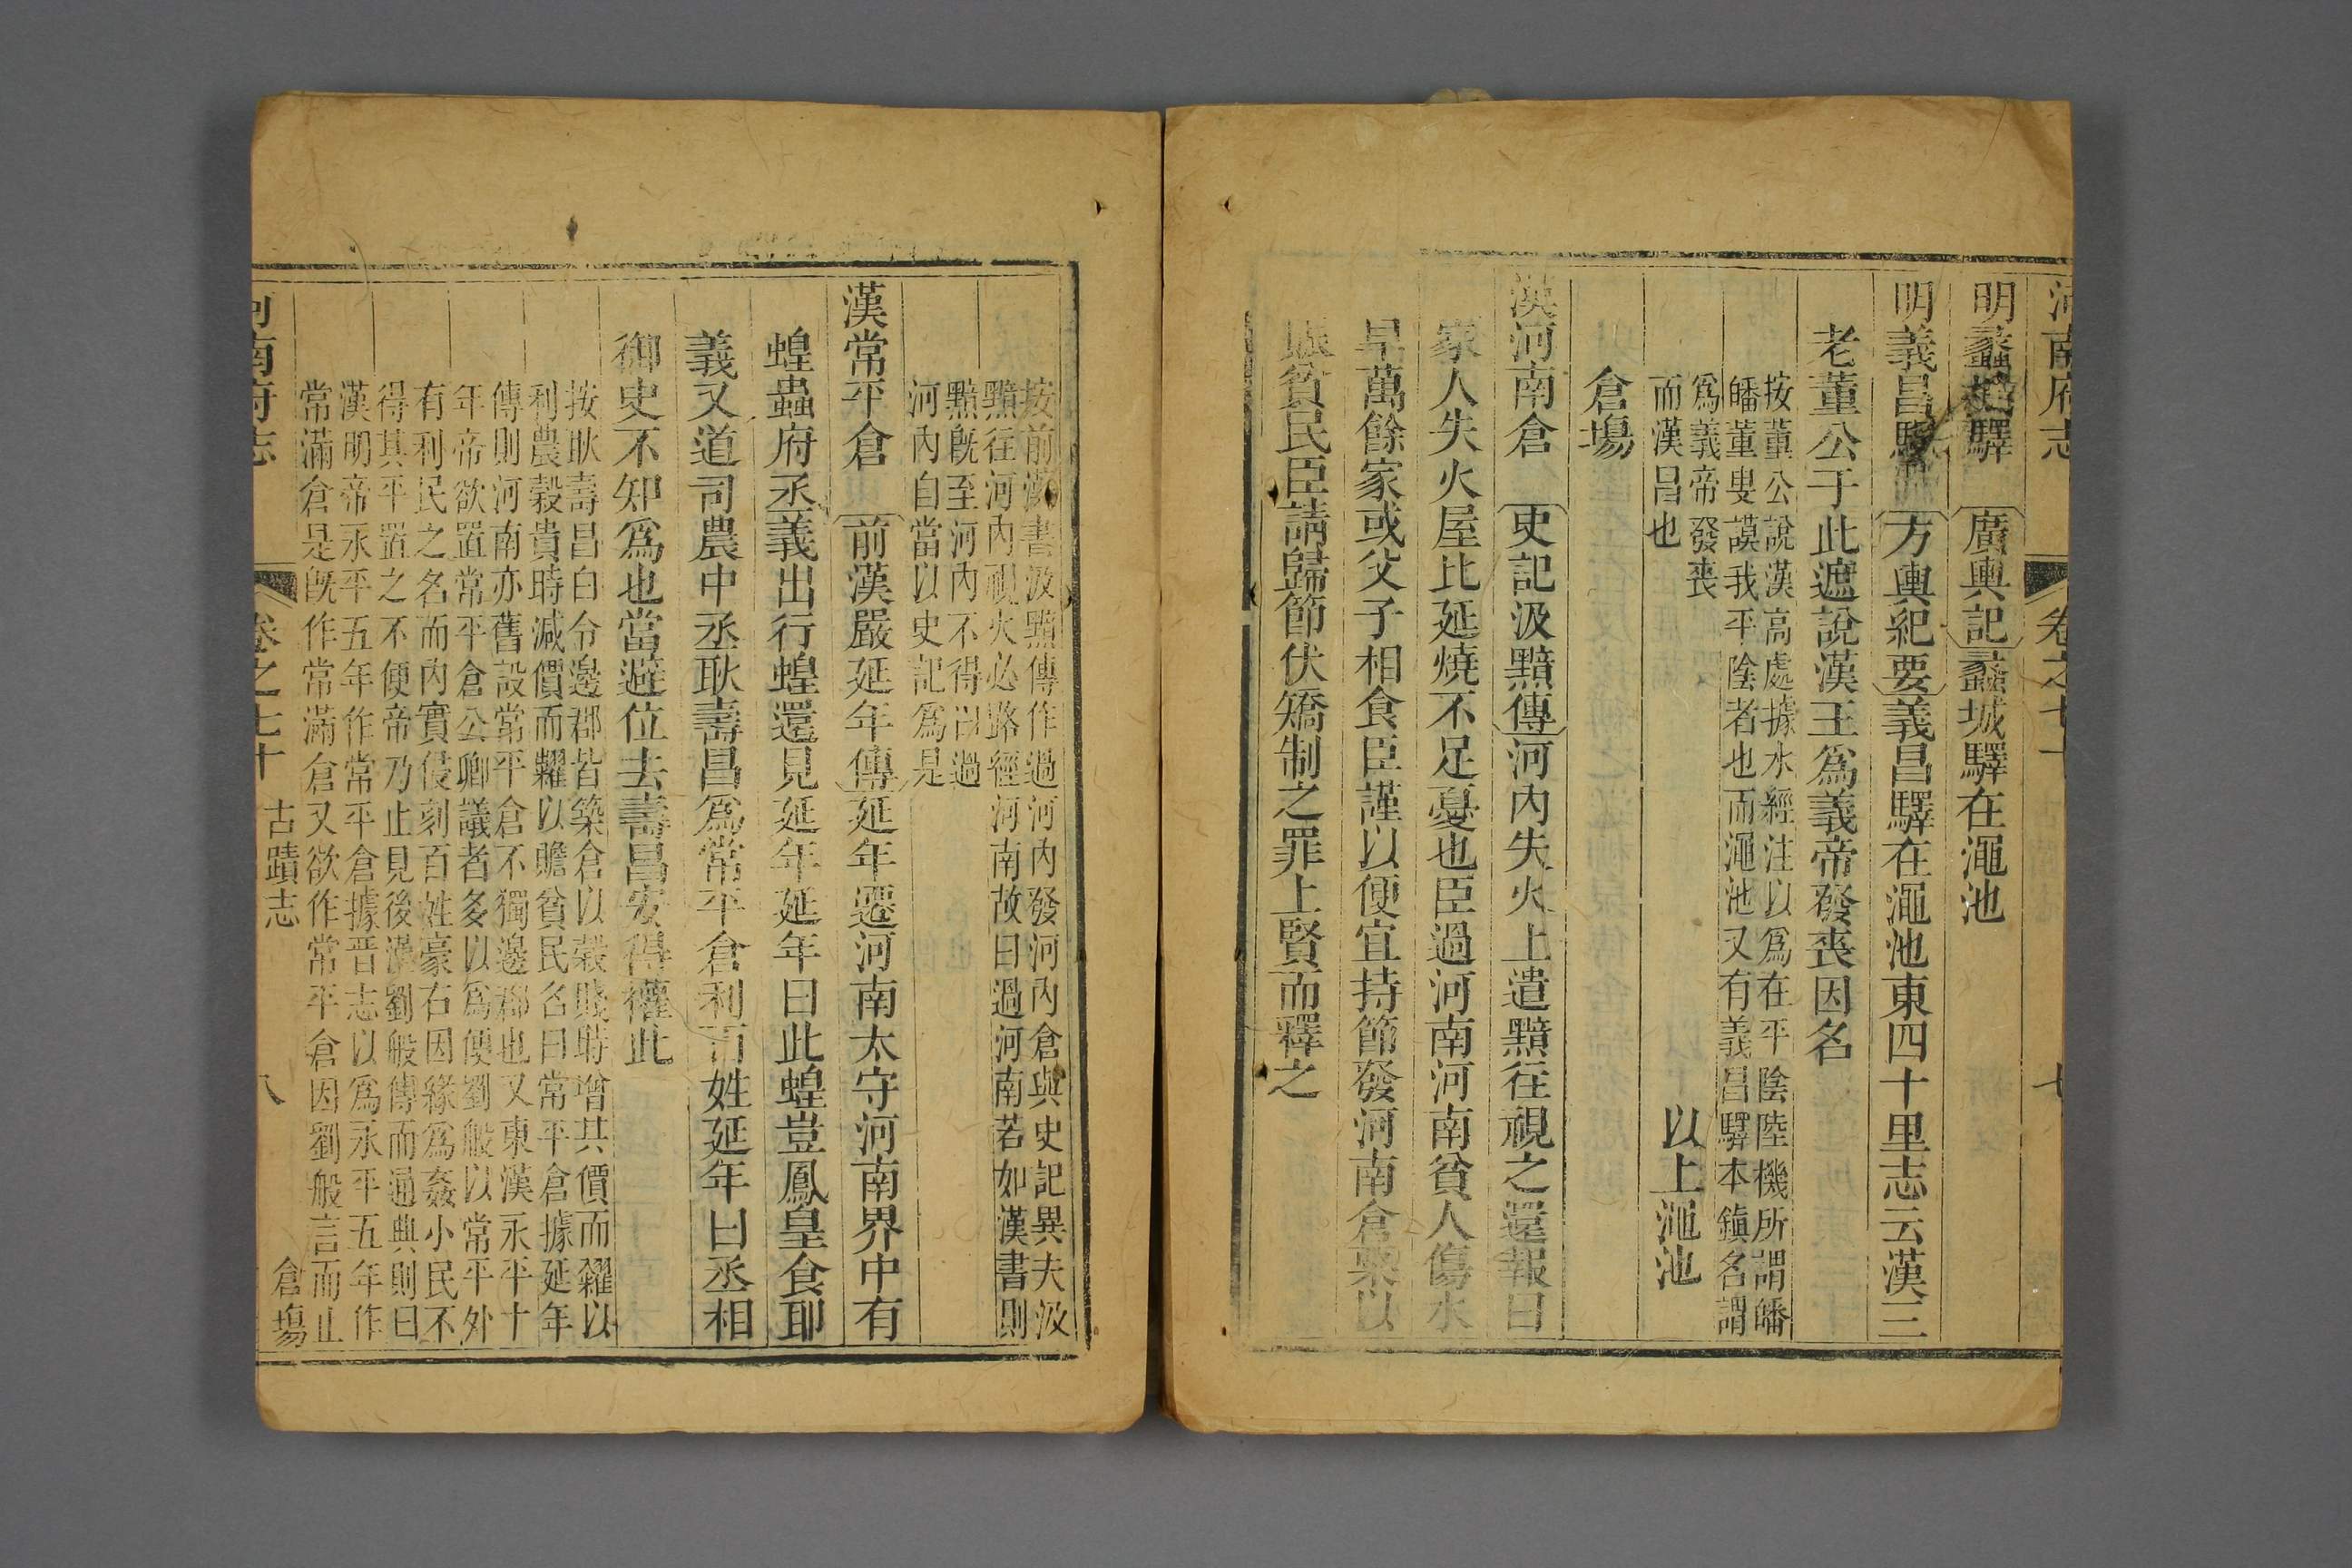 河南府志 卷之七十 七
明蠡城驛 廣輿記蠡城驛在澠池
明義昌驛 方輿紀要義昌驛在澠池東四十里志云漢三
老董公于此遮說漢王為義帝發喪因名
按董公說漢高處據水經注以為在平陰陸機所謂皤
皤董叟謨我平陰者也而澠池又有義昌驛本鎮名謂
為義帝發喪
而漢昌也
以上澠池
倉場
漢河南倉 史記汲黯傳河內失火上遣黯往視之還報曰
家人失火屋比延燒不足憂也臣過河南河南貧人傷水
旱萬餘家或父子相食臣謹以便宜持節發河南倉粟以
賑貧民臣請歸節伏矯制之罪上賢而釋之
按前漢書汲黯傳作過河內發河內倉與史記異夫汲
黯往河內視火必路經河南故曰過河南若如漢書則
黯既至河內不得曰過
河內自當以史記為是
漢常平倉 前漢嚴延年傳延年遷河南太守河南界中有
蝗蟲府丞義出行蝗還見延年延年曰此蝗豈鳳皇食耶
義又道司農中丞耿壽昌為常平倉利百姓延年曰丞相
御史不知為也當避位去壽昌安得權此
按耿壽昌白令邊郡皆築倉以穀賤時增其價而糴以
利農穀貴時減價而糶以贍貧民名曰常平倉據延年
傳則河南亦舊設常平倉不獨邊郡也又東漢永平十
年帝欲置常平倉公卿議者多以為便劉般以常平外
有利民之名而內實侵刻百姓豪右因緣為姦小民不
得其平置之不便帝乃止見後漢劉般傳而通典則曰
漢明帝永平五年作常平倉據晉志以為永平五年作
常滿倉是既作常滿倉又欲作常平倉因劉般言而止
河南府志 卷之七十 古蹟志 倉場 八